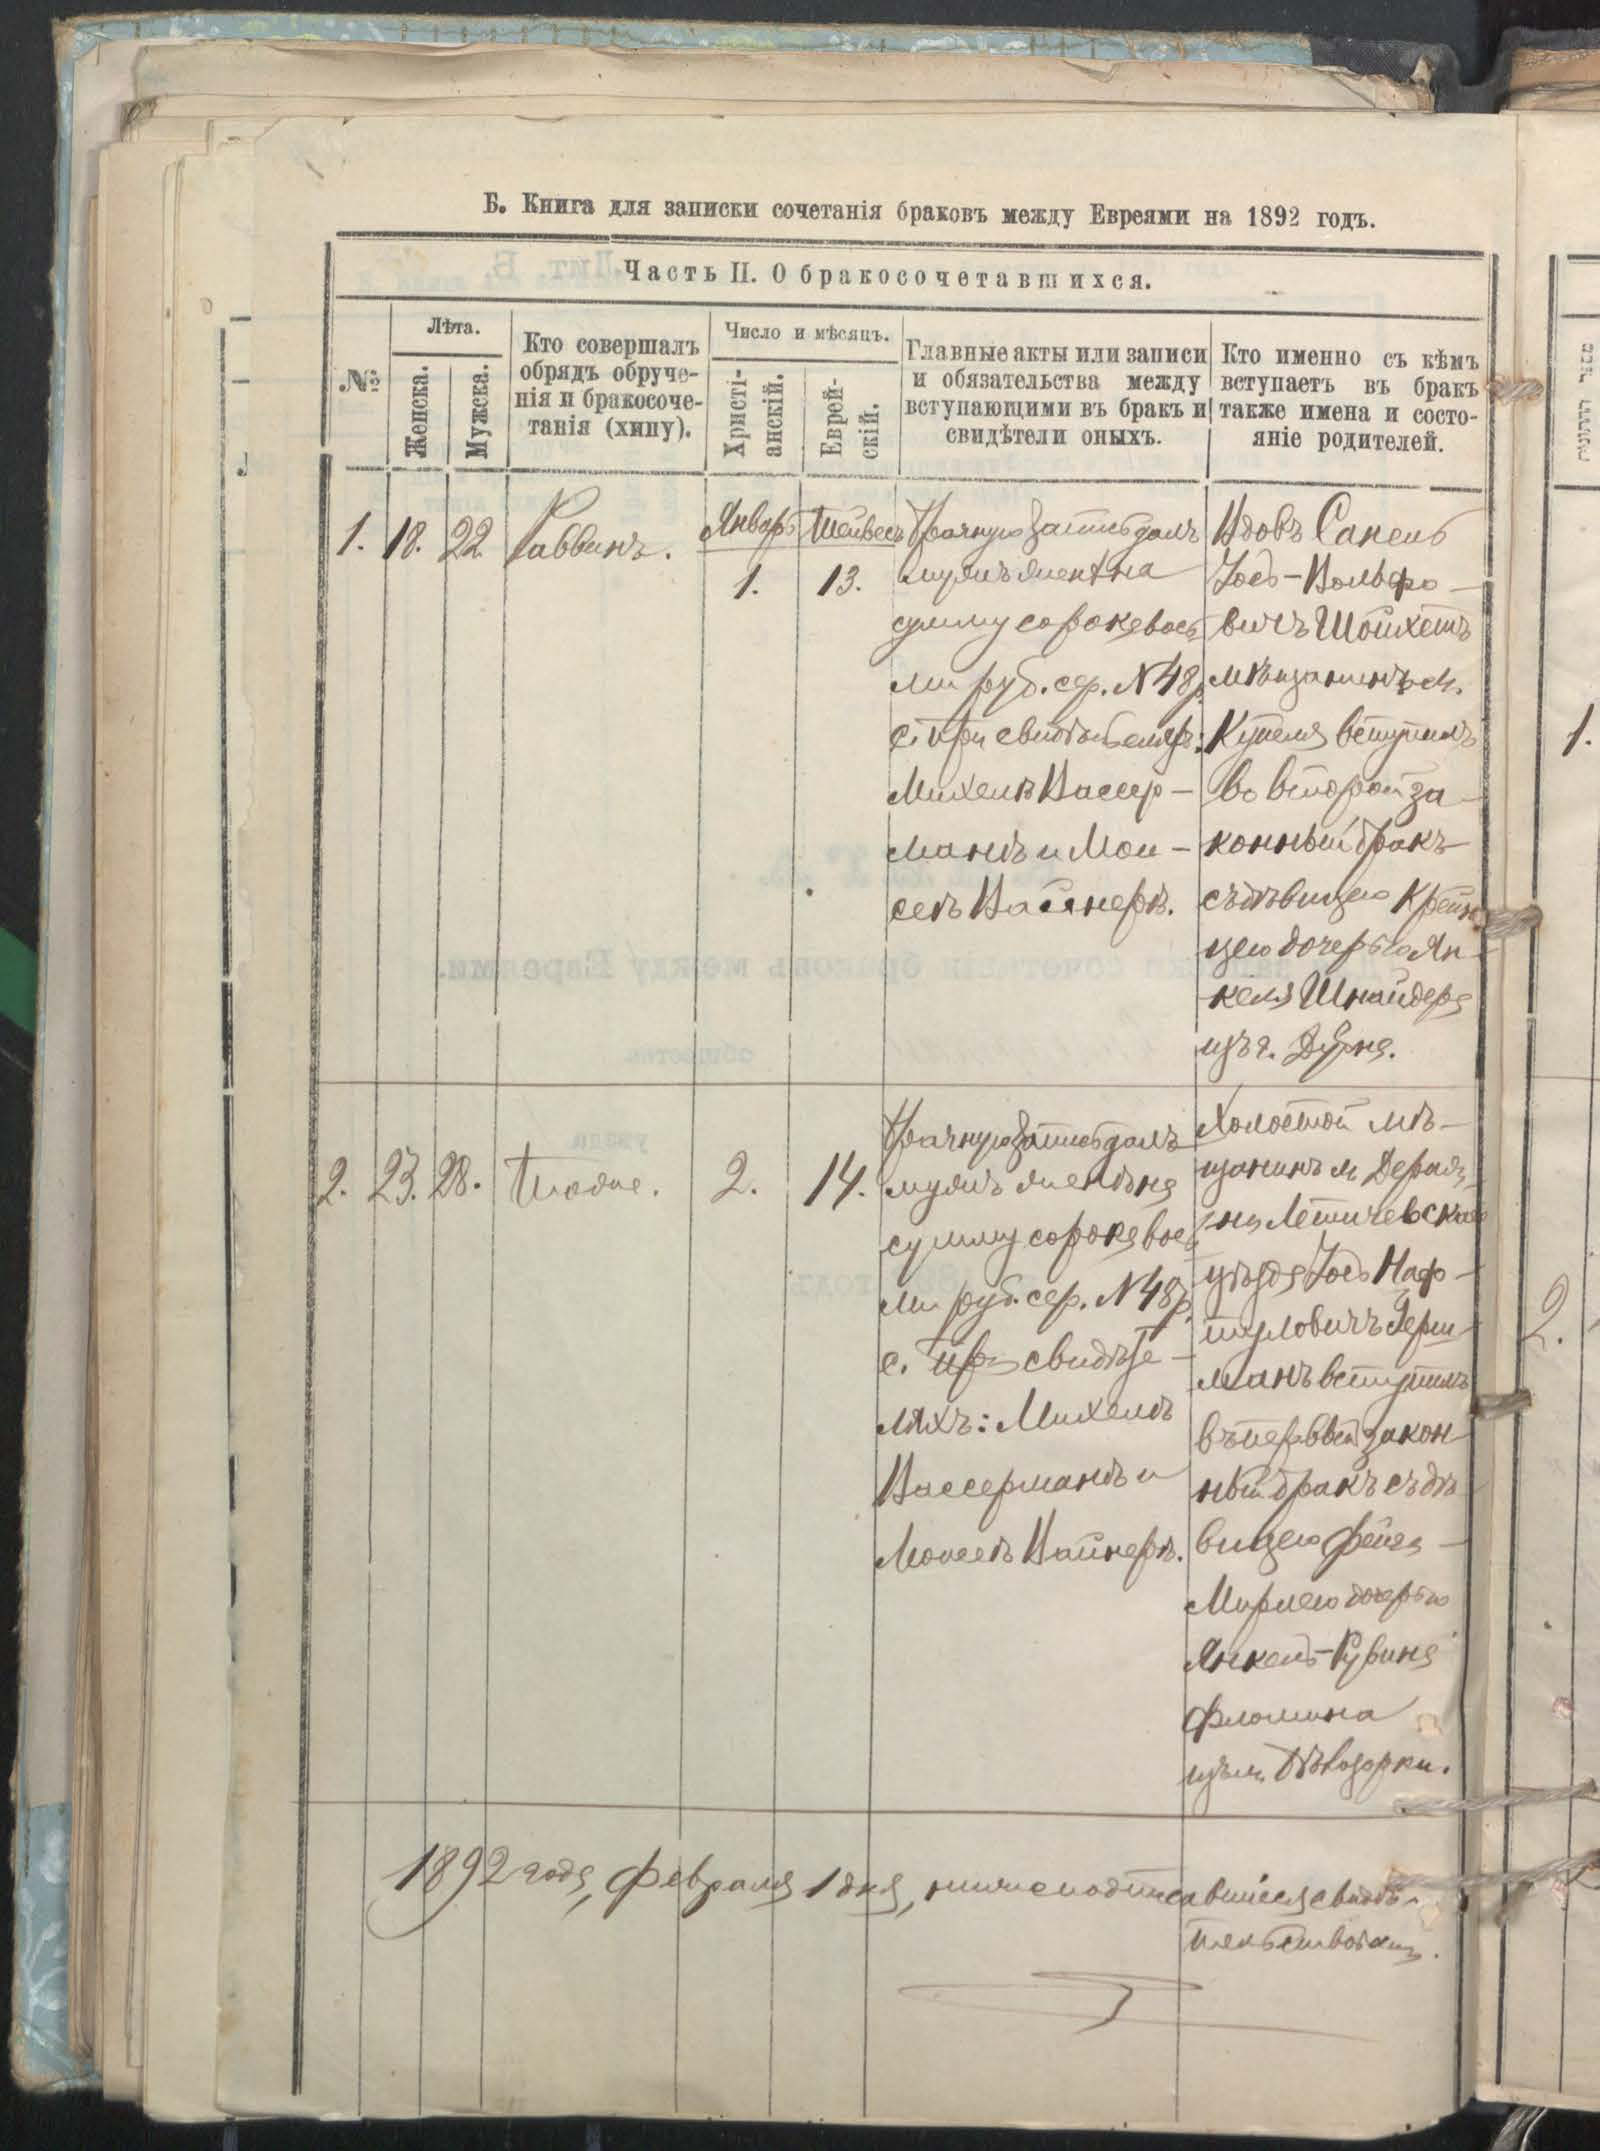 Б. Книга для записки сочетанія браковъ между Евреями на 1892 годъ.
Часть II. О бракосочетавшихся.
№
Лѣта.
Женска.
Мужска.
Кто совершалъ
обрядъ обруче-
нія и бракосоче-
танія (хипу).
Число и мѣсяцъ.
Христі-
анскій.
Еврей-
скій.
Главные акты или записи
и обязательства между
вступающими въ бракъ и
свидѣтели оныхъ.
Кто именно съ кѣмъ
вступаетъ въ бракъ
также имена и состо-
яніе родителей.
1. 18. 22 Раввинъ.
Январь
1.
Тейвесъ
13.
Брачную запись далъ
мужъ женѣ на
сумму сорокъ восе
ми руб. сер. № 48 р.
с. при свидѣтеляхъ:
Михель Вассер-
манъ и Мои-
сей Вайнеръ.
Вдовъ Сапель
Йось-Вольфо-
вичъ Шойхетъ
мѣщанинъ м.
Купеля вступилъ
во второй за-
конный бракъ
съ дѣвицею Крейн
цею дочерью Ян-
келя Шнайдера
изъ г. Дубна.
2. 23. 28. Тоже. 2. 14.
Брачную запись далъ
мужъ женѣ на
сумму сорокъ восе
ми руб. сер. № 48 р.
с. при свидѣте-
ляхъ: Михель
Вассерманъ и
Моисей Вайнеръ.
Холостой мѣ-
щанинъ м. Дераж
ни Летичевскаго
уѣзда Йось Наф-
туловичъ Герш
манъ вступилъ
въ первый закон-
ный бракъ съ дѣ-
вицею Фейга-
Мирлею дочерью
Янкель-Рувина
изъ м. Бѣлозорки.
1892 года, февраля 1 дня, нижеподписавшіеся свидѣ-
тельствовали.
1.
2.